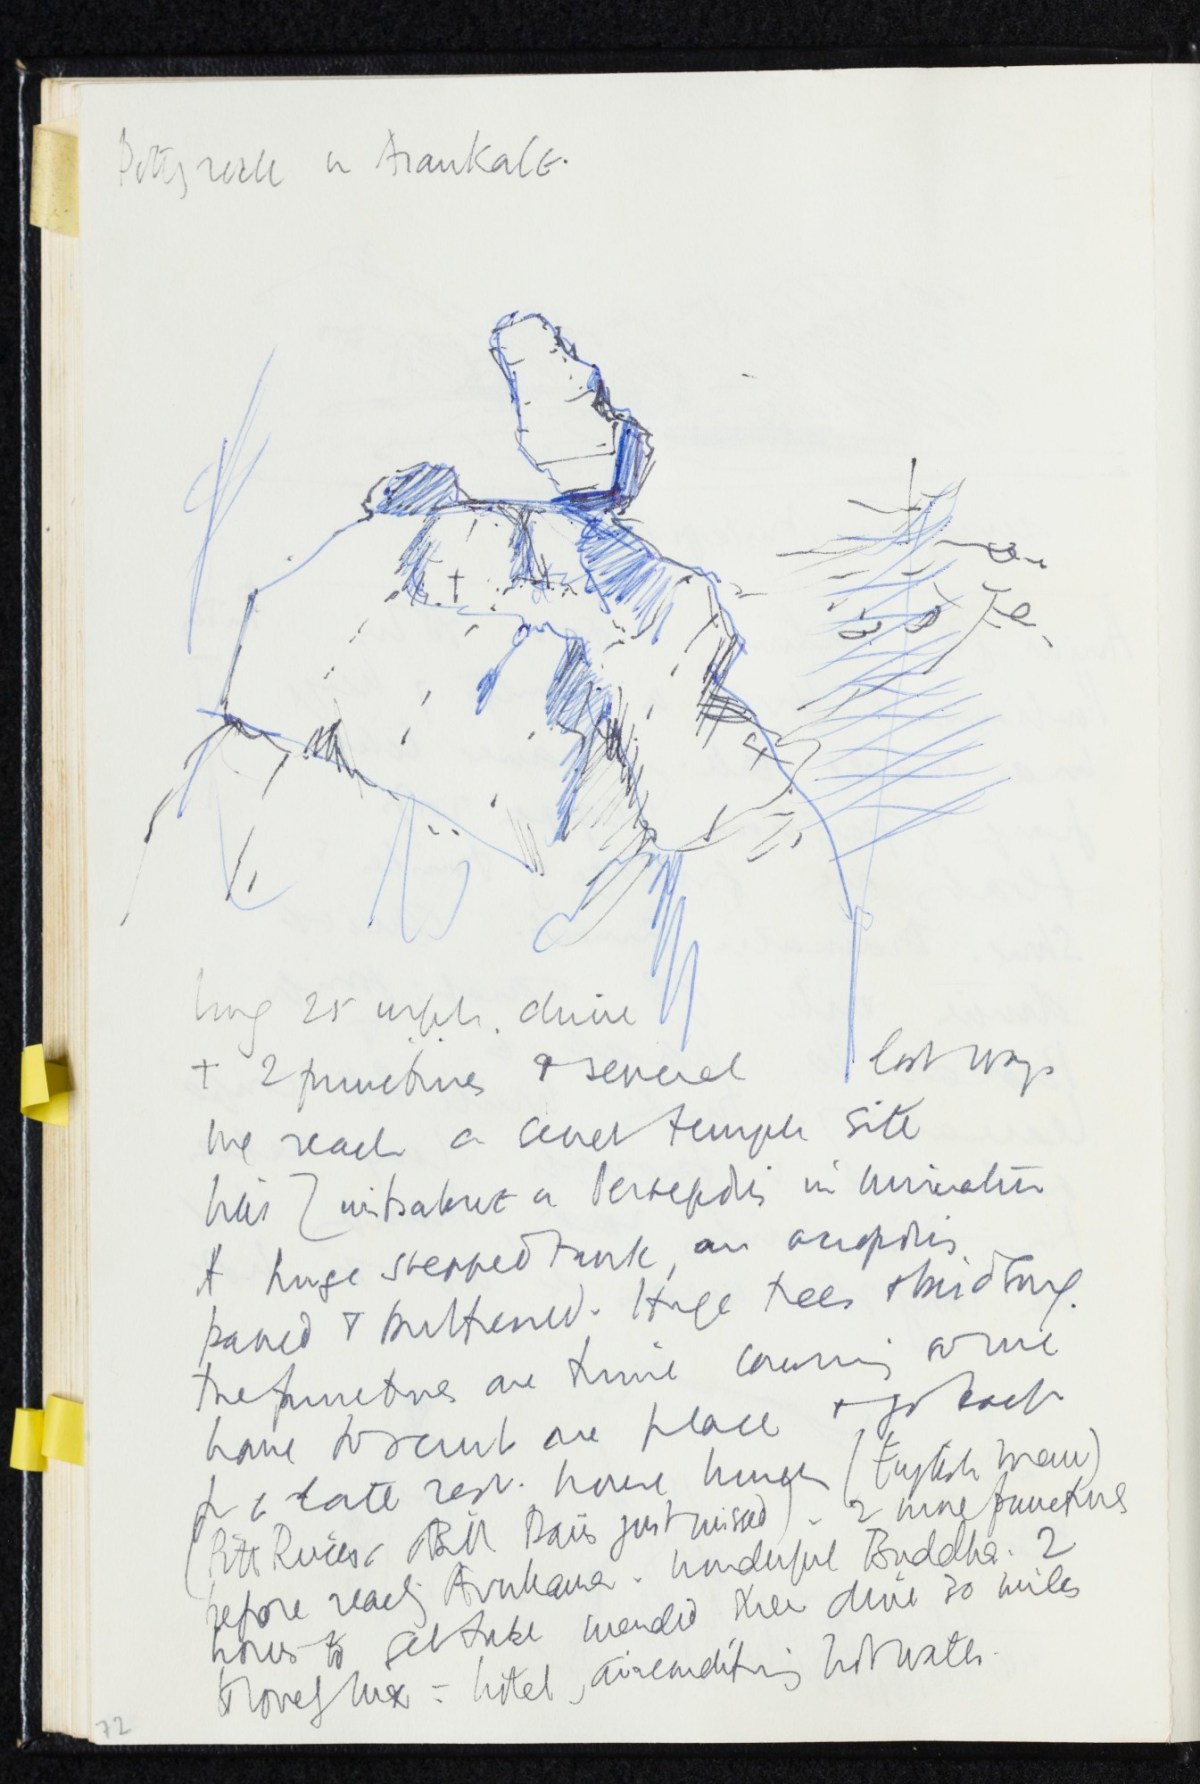 rock in Arankale.
long 25 mph. drive
+ 2 punctures + several lost ways
we reach a secret temple site
in miniature
A huge stepped tank, an acropolis
paved & buttressed. Huge trees + birdsong.
The punctures are time consuming as we
have to scout one place + go back
for a late rest. house lunch (English
(Pitt Rivers Bill Davis just missed) - 2 more punctures
before reachg Avukana - wonderful Buddha. 2
hours to get tube mended then drive 30 miles
to lovely lux = hotel, airconditioning hot water.
72